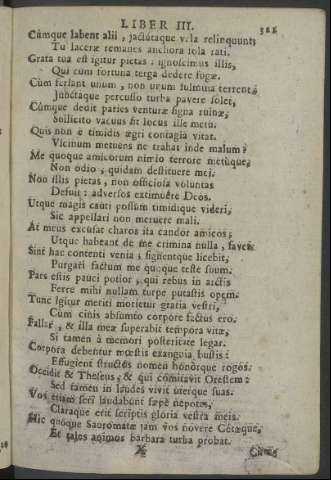 LIBER III. 321
Cúmque labent alii, jactátaque vela relinquunt;
Tu laceræ remanes anchora sola rati.
Grata tua est igitur pietas: ignoscimus illis,
Qui cum fortuna terga dedere fugæ.
Cùm feriant unum, non unum fulmina terrent;
Junctaque percusso turba pavere solet,
Cúmque dedit paries venturæ signa ruinæ,
Sollicito vacuus fit locus ille metu.
Quis non è timidis ægri contagia vitat,
Vicinum metuens ne trahat inde malum?
Me quoque amicorum nimio terrore metúque,
Non odio, quidam destituere mei.
Non illis pietas, non officiosa voluntas
Defuit: adversos extimuére Deos.
Utque magis cauti possunt timidique videri,
Sic appellari non meruere mali.
At meus excusat charos ita candor amicos;
Utque habeant de me crimina nulla, favet.
Sint hac contenti venia, signentque licebit,
Purgari factum me quoque teste suum.
Pars estis pauci potior, qui rebus in arctis
Ferre mihi nullam turpe putastis opem.
Tunc igitur meriti morietur gratia vestri,
Cùm cinis absumto corpore factus ero.
Fallar, & illa meæ superabit tempora vitæ,
Si tamen à memori posteritate legar.
Corpora debentur mœstis exanguia bustis:
Effugient structos nomen honorque rogos.
Occidit & Theseus, & qui comitavit Orestem:
Sed tamen in laudes vivit uterque suas.
Vos etiam seri laudabunt sæpe nepotes,
Claraque erit scriptis gloria vestra meis.
Hic quoque Sauromatæ jam vos novere Getæque,
Et tales animos barbara turba probat.